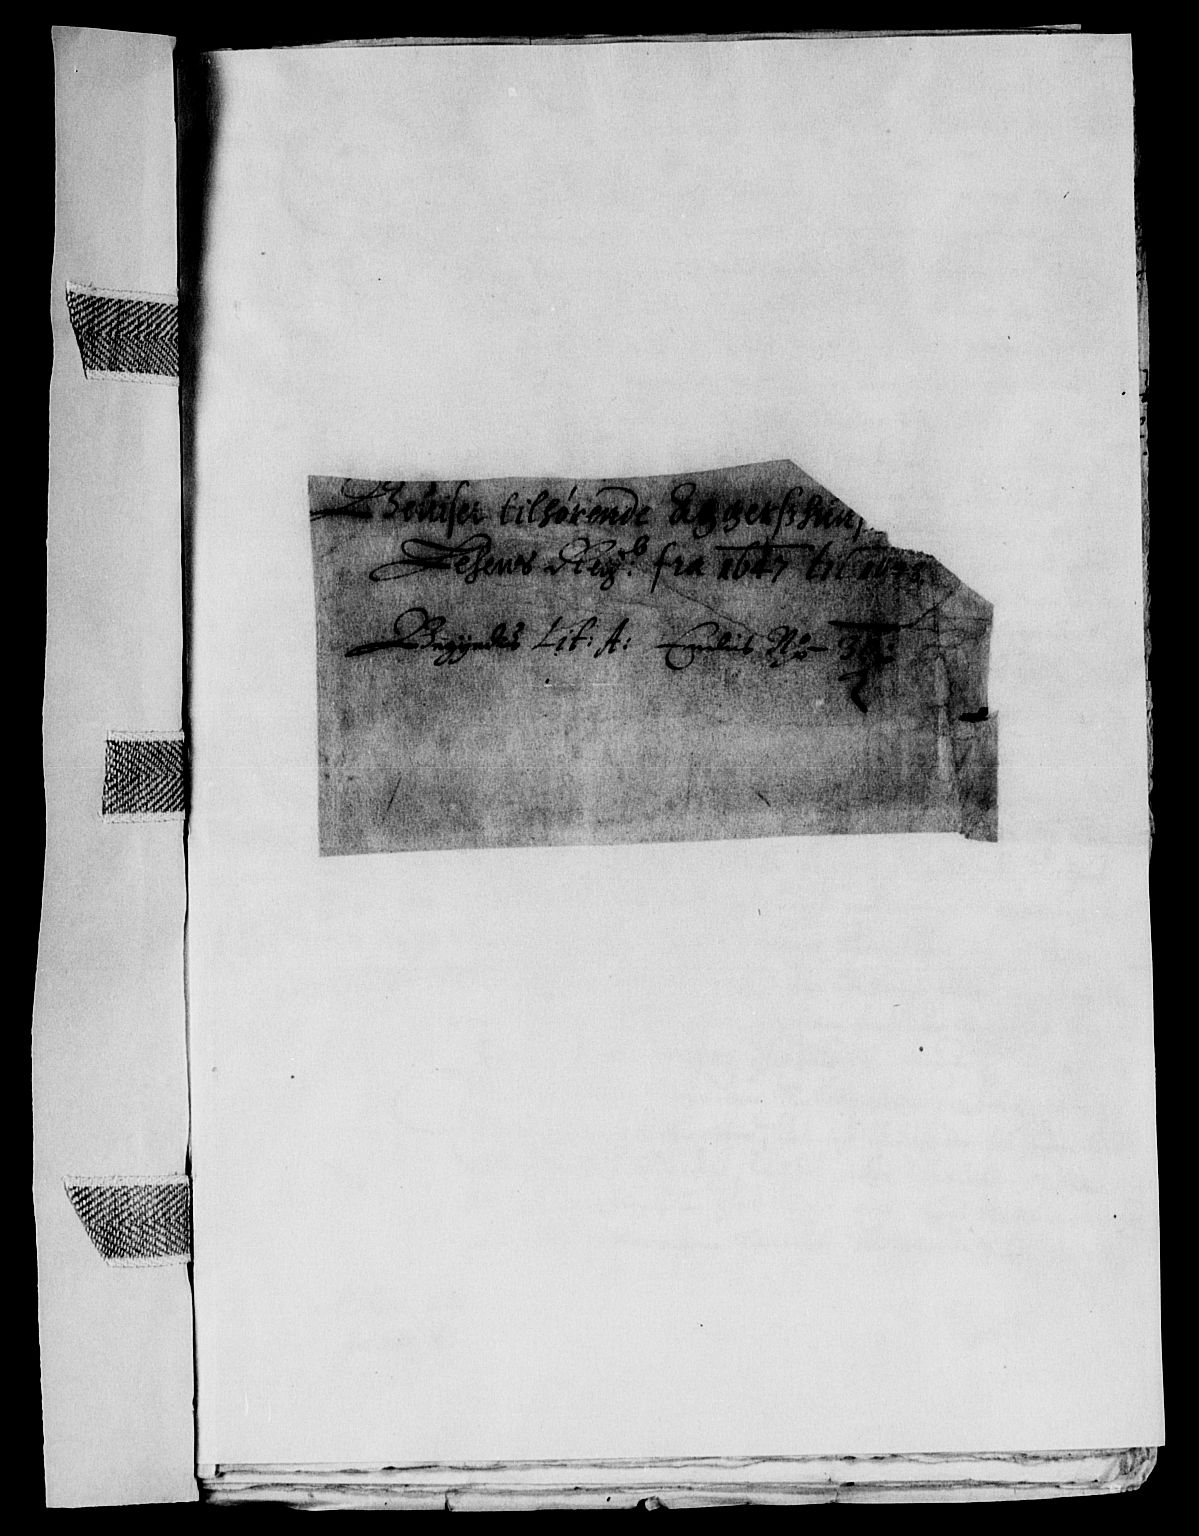 Beuiser tilhørende Aggerßhuus
Lehens Regn:ß fra 1647 til 1648
Begyndes Lit: A: Endis No